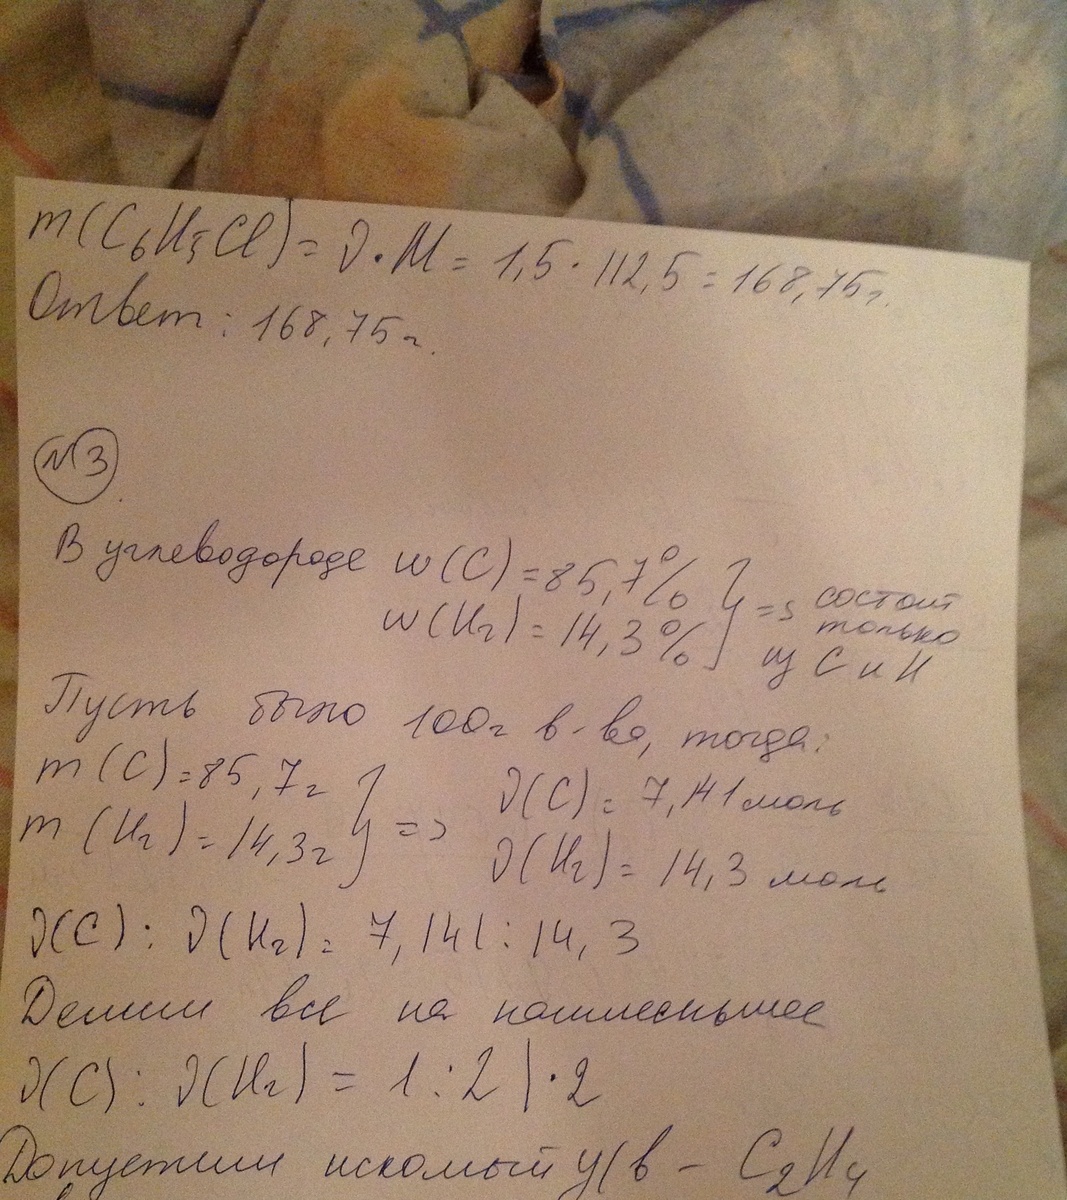 m(C₆H₅Cl) = ν·M = 1,5·112,5 = 168,75г.
Ответ: 168,75г.
№3
В углеводороде w(C) = 85,7% } => состоит
w(H₂) = 14,3% } только
из С и Н
Пусть было 100г в-ва, тогда:
m(C) = 85,7г } ν(C) = 7,141моль
m(H₂) = 14,3г } => ν(H₂) = 14,3 моль
ν(C) : ν(H₂) = 7,141 : 14,3
Делим всё на наименьшее
ν(C) : ν(H₂) = 1 : 2 | ·2
Допустим искомый у/в – C₂H₄